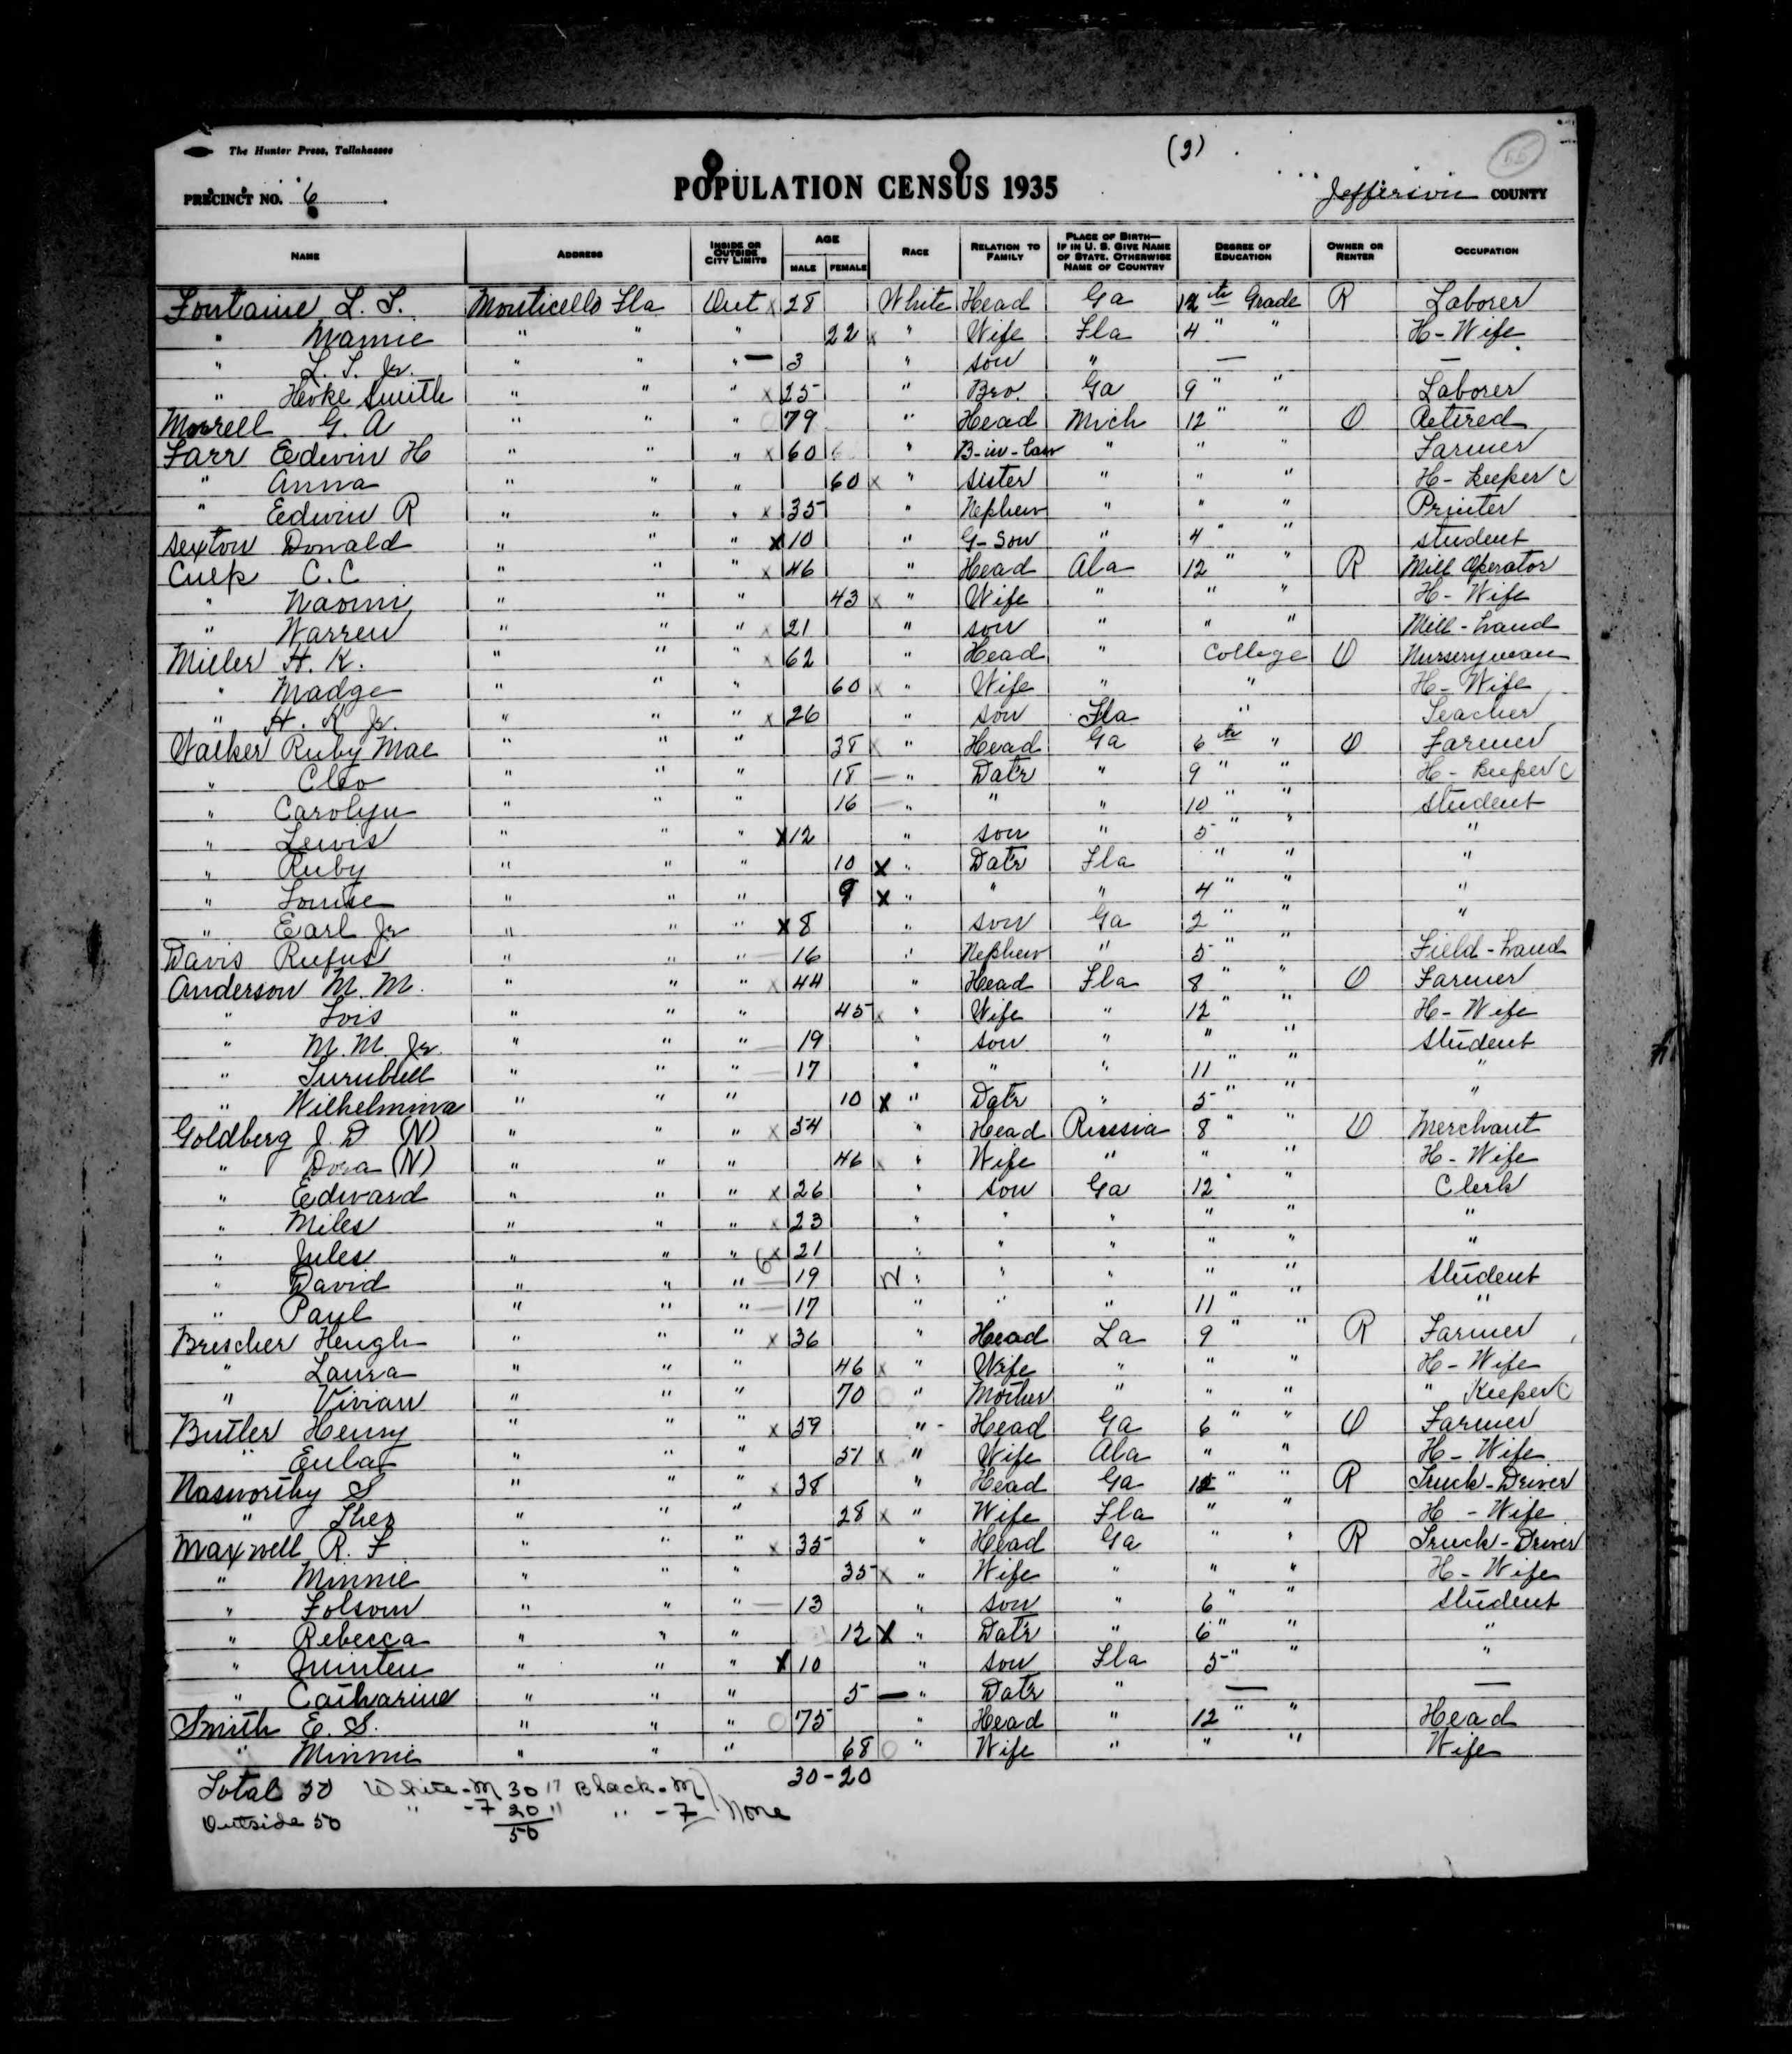 The Hunter Press, Tallahassee
(2)
PRECINCT NO. 6 POPULATION CENSUS 1935 Jefferson COUNTY
NAME ADDRESS INSIDE OR OUTSIDE CITY LIMITS AGE MALE FEMALE RACE RELATION TO FAMILY PLACE OF BIRTH—IF IN U. S. GIVE NAME OF STATE, OTHERWISE NAME OF COUNTRY DEGREE OF EDUCATION OWNER OR RENTER OCCUPATION
Fontaine L. S. Monticello Fla Out x 28 White Head Ga 12th Grade R Laborer
" Mamie " " " 22 x " Wife Fla 4 " " H-Wife
" L. S. Jr. " " " — 3 " son " — —
" Hoke Smith " " " x 25 " Bro. Ga 9 " " Laborer
Morrell G. A " " " 79 " Head Mich 12 " " O Retired
Farr Edwin H " " " x 60 " B-in-law " " " Farmer
" Anna " " " 60 x " sister " " " H-keeper C
" Edwin R " " " x 35 " Nephew " " " Printer
Sexton Donald " " " x 10 " G-son " 4 " " student
Culp C. C " " " x 46 " Head Ala 12 " " R Mill Operator
" Naomi " " " 43 x " Wife " " " H-Wife
" Warren " " " x 21 " son " " " Mill-hand
Miller H. K. " " " x 62 " Head " College O Nurseryman
" Madge " " " 60 x " Wife " " H-Wife
" H. K Jr. " " " x 26 " son Fla " Teacher
Walker Ruby Mae " " " 38 x " Head Ga 6th " O Farmer
" Cleo " " " 18 — " Datr " 9 " " H-keeper C
" Carolyn " " " 16 — " " " 10 " " student
" Lewis " " " x 12 " son " 5 " " "
" Ruby " " " 10 x " Datr Fla " " "
" Louise " " " 9 x " " " 4 " " "
" Earl Jr " " " x 8 " son Ga 2 " " "
Davis Rufus " " " — 16 " Nephew " 5 " " Field-hand
Anderson M. M. " " " x 44 " Head Fla 8 " " O Farmer
" Lois " " " 45 x " Wife " 12 " " H-Wife
" M. M. Jr. " " " — 19 " son " " " student
" Turnbull " " " — 17 " " " 11 " " "
" Wilhelmina " " " 10 x " Datr " 5 " " "
Goldberg J. D (N) " " " x 54 " Head Russia 8 " " O Merchant
" Dora (N) " " " 46 x " Wife " " " H-Wife
" Edward " " " x 26 " son Ga 12 " " Clerk
" Miles " " " x 23 " " " " " "
" Jules " " " x 21 " " " " " "
" David " " " — 19 N " " " " " student
" Paul " " " — 17 " " " 11 " " "
Brescher Heugh " " " x 36 " Head La 9 " " R Farmer
" Laura " " " 46 x " Wife " " " H-Wife
" Vivian " " " 70 O " Mother " " " " Keeper C
Butler Henry " " " x 59 " Head Ga 6 " " O Farmer
" Eula " " " 51 x " Wife Ala " " H-Wife
Nasworthy S " " " x 38 " Head Ga 12 " " R Truck-Driver
" " " " 28 x " Wife Fla " " H-Wife
Maxwell R. F " " " x 35 " Head Ga " " R Truck-Driver
" Minnie " " " 35 x " Wife " " " H-Wife
" Folsom " " " — 13 " son " 6 " " student
" Rebecca " " " 12 x " Datr " 6 " " "
" Quinten " " " x 10 " son Fla 5 " " "
" Catharine " " " 5 — " Datr " — —
Smith E. S. " " " O 75 " Head " 12 " " Head
" Minnie " " " 68 O " Wife " " " Wife
30-20
Total 50 White-M 30 " Black-M
Outside 50 " -F 20 " " -F None
50